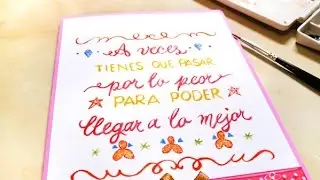 A veces
TIENES QUE PASAR
por lo peor
PARA PODER
llegar a lo mejor